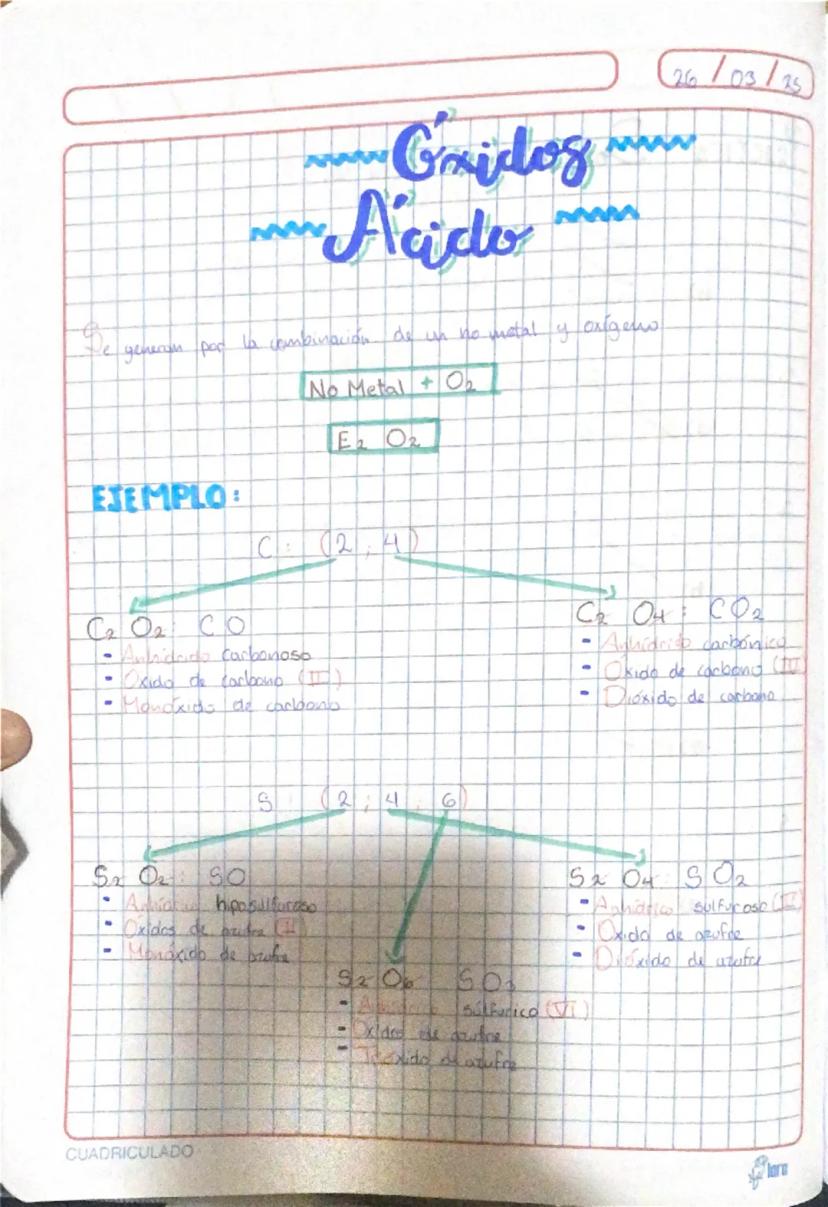 26 / 03 / 25
Óxidos
Ácido
Se generan por la combinación de un no metal y oxígeno
No Metal + O2
E2 O2
EJEMPLO:
C : (2 ; 4)
C2 O2: CO
- Anhídrido carbonoso
- Óxido de carbono (II)
- Monóxido de carbono
C2 O4: CO2
- Anhídrido carbónico
- Óxido de carbono (IV)
- Dióxido de carbono
S (2 ; 4 ; 6)
S2 O2: SO
- hiposulfuroso
- Óxidos de azufre
- Monóxido de azufre
S2 O4: SO2
- Anhídrico sulfuroso
- Oxido de azufre
- Dióxido de azufre
S2 O6 SO3
- sulfúrico (VI)
- Oxidos de azufre
- de azufre
CUADRICULADO
loro